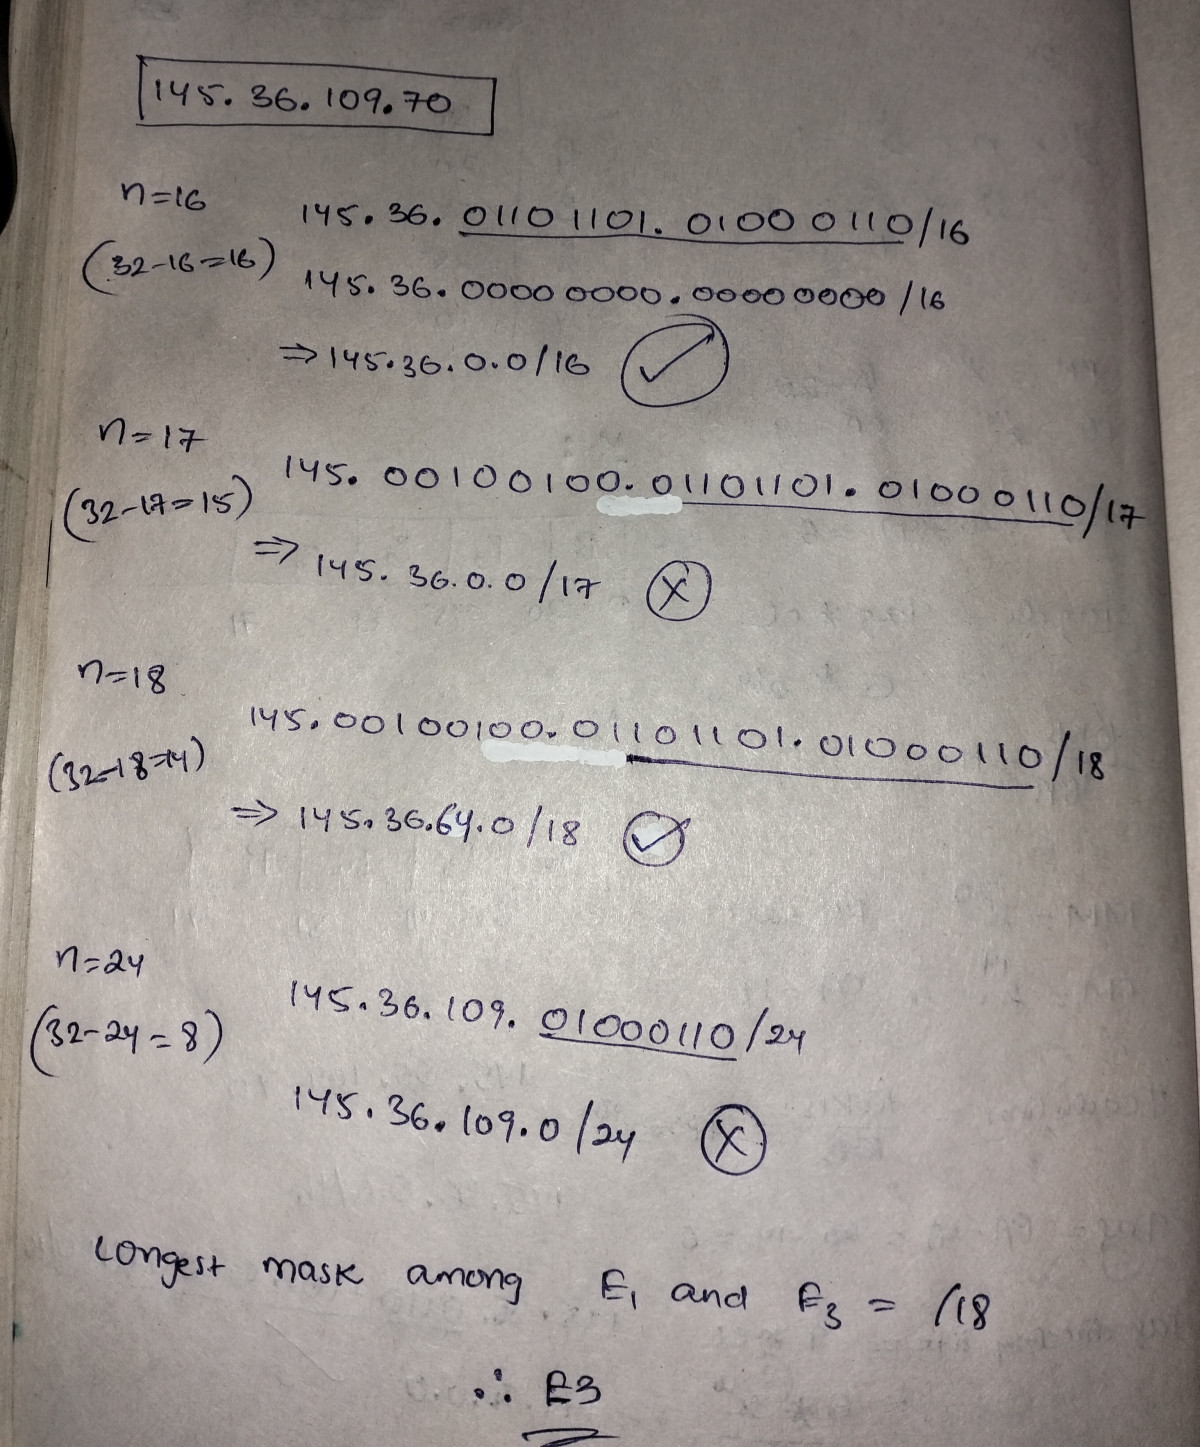 145.36.109.70
n=16
145.36.01101101.01000110/16
(32-16=16)
145.36.00000000.00000000/16
⇒145.36.0.0/16
n=17
145.00100100.01101101.01000110/17
(32-17=15)
⇒ 145.36.0.0/17
n=18
145.00100100.01101101.01000110/18
(32-18=14)
⇒ 145.36.64.0/18
n=24
145.36.109.01000110/24
(32-24=8)
145.36.109.0/24
Longest mask among E₁ and E₃ = /18
∴ E3